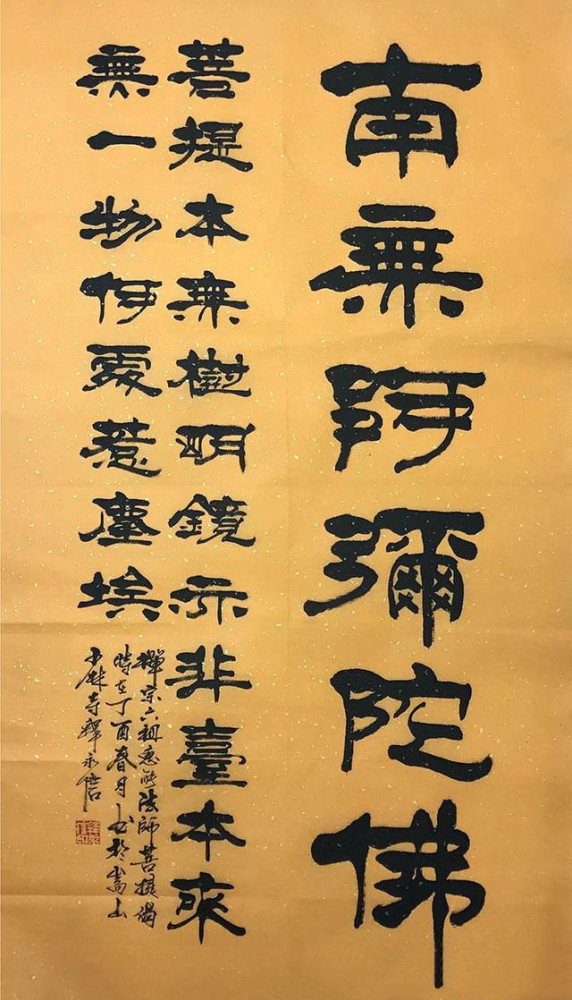 南無阿彌陀佛
菩提本無樹明鏡亦非臺本來
無一物何處惹塵埃
禪宗六祖惠能法師菩提偈
時在丁酉春月書於嵩山
少林寺釋永信